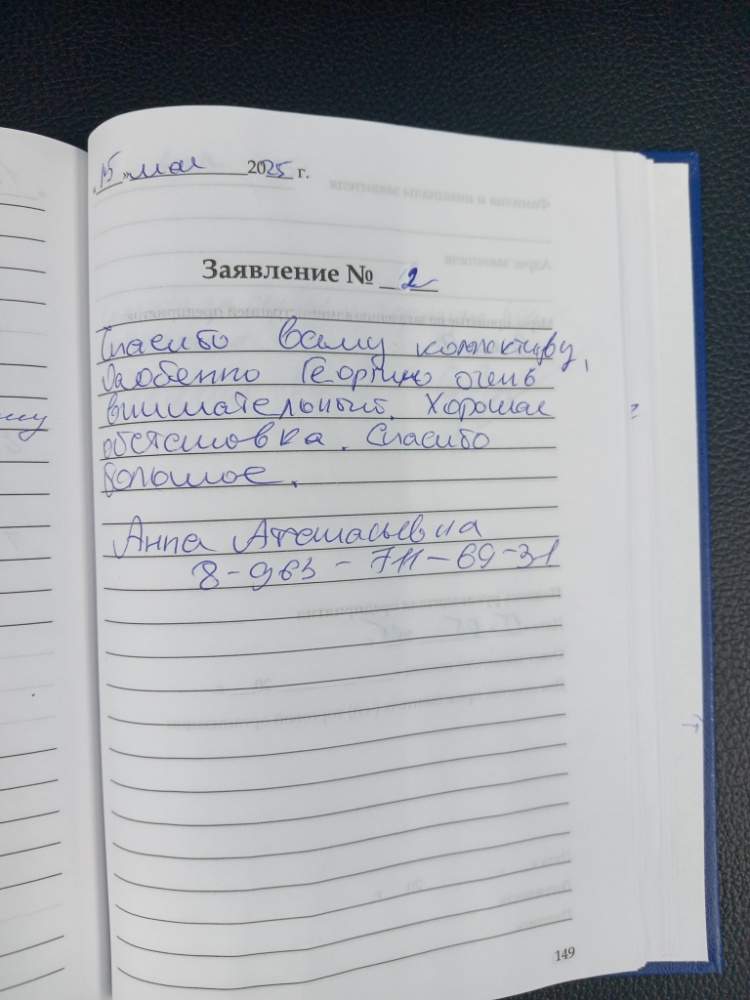 «15» мая 2025 г.
Заявление № 2
Спасибо Вашу коллективу,
Особенно Георгию очень
внимательный. Хорошая
обстановка. Спасибо
большое.
Анна Афанасьевна
8-963-711-69-31
149